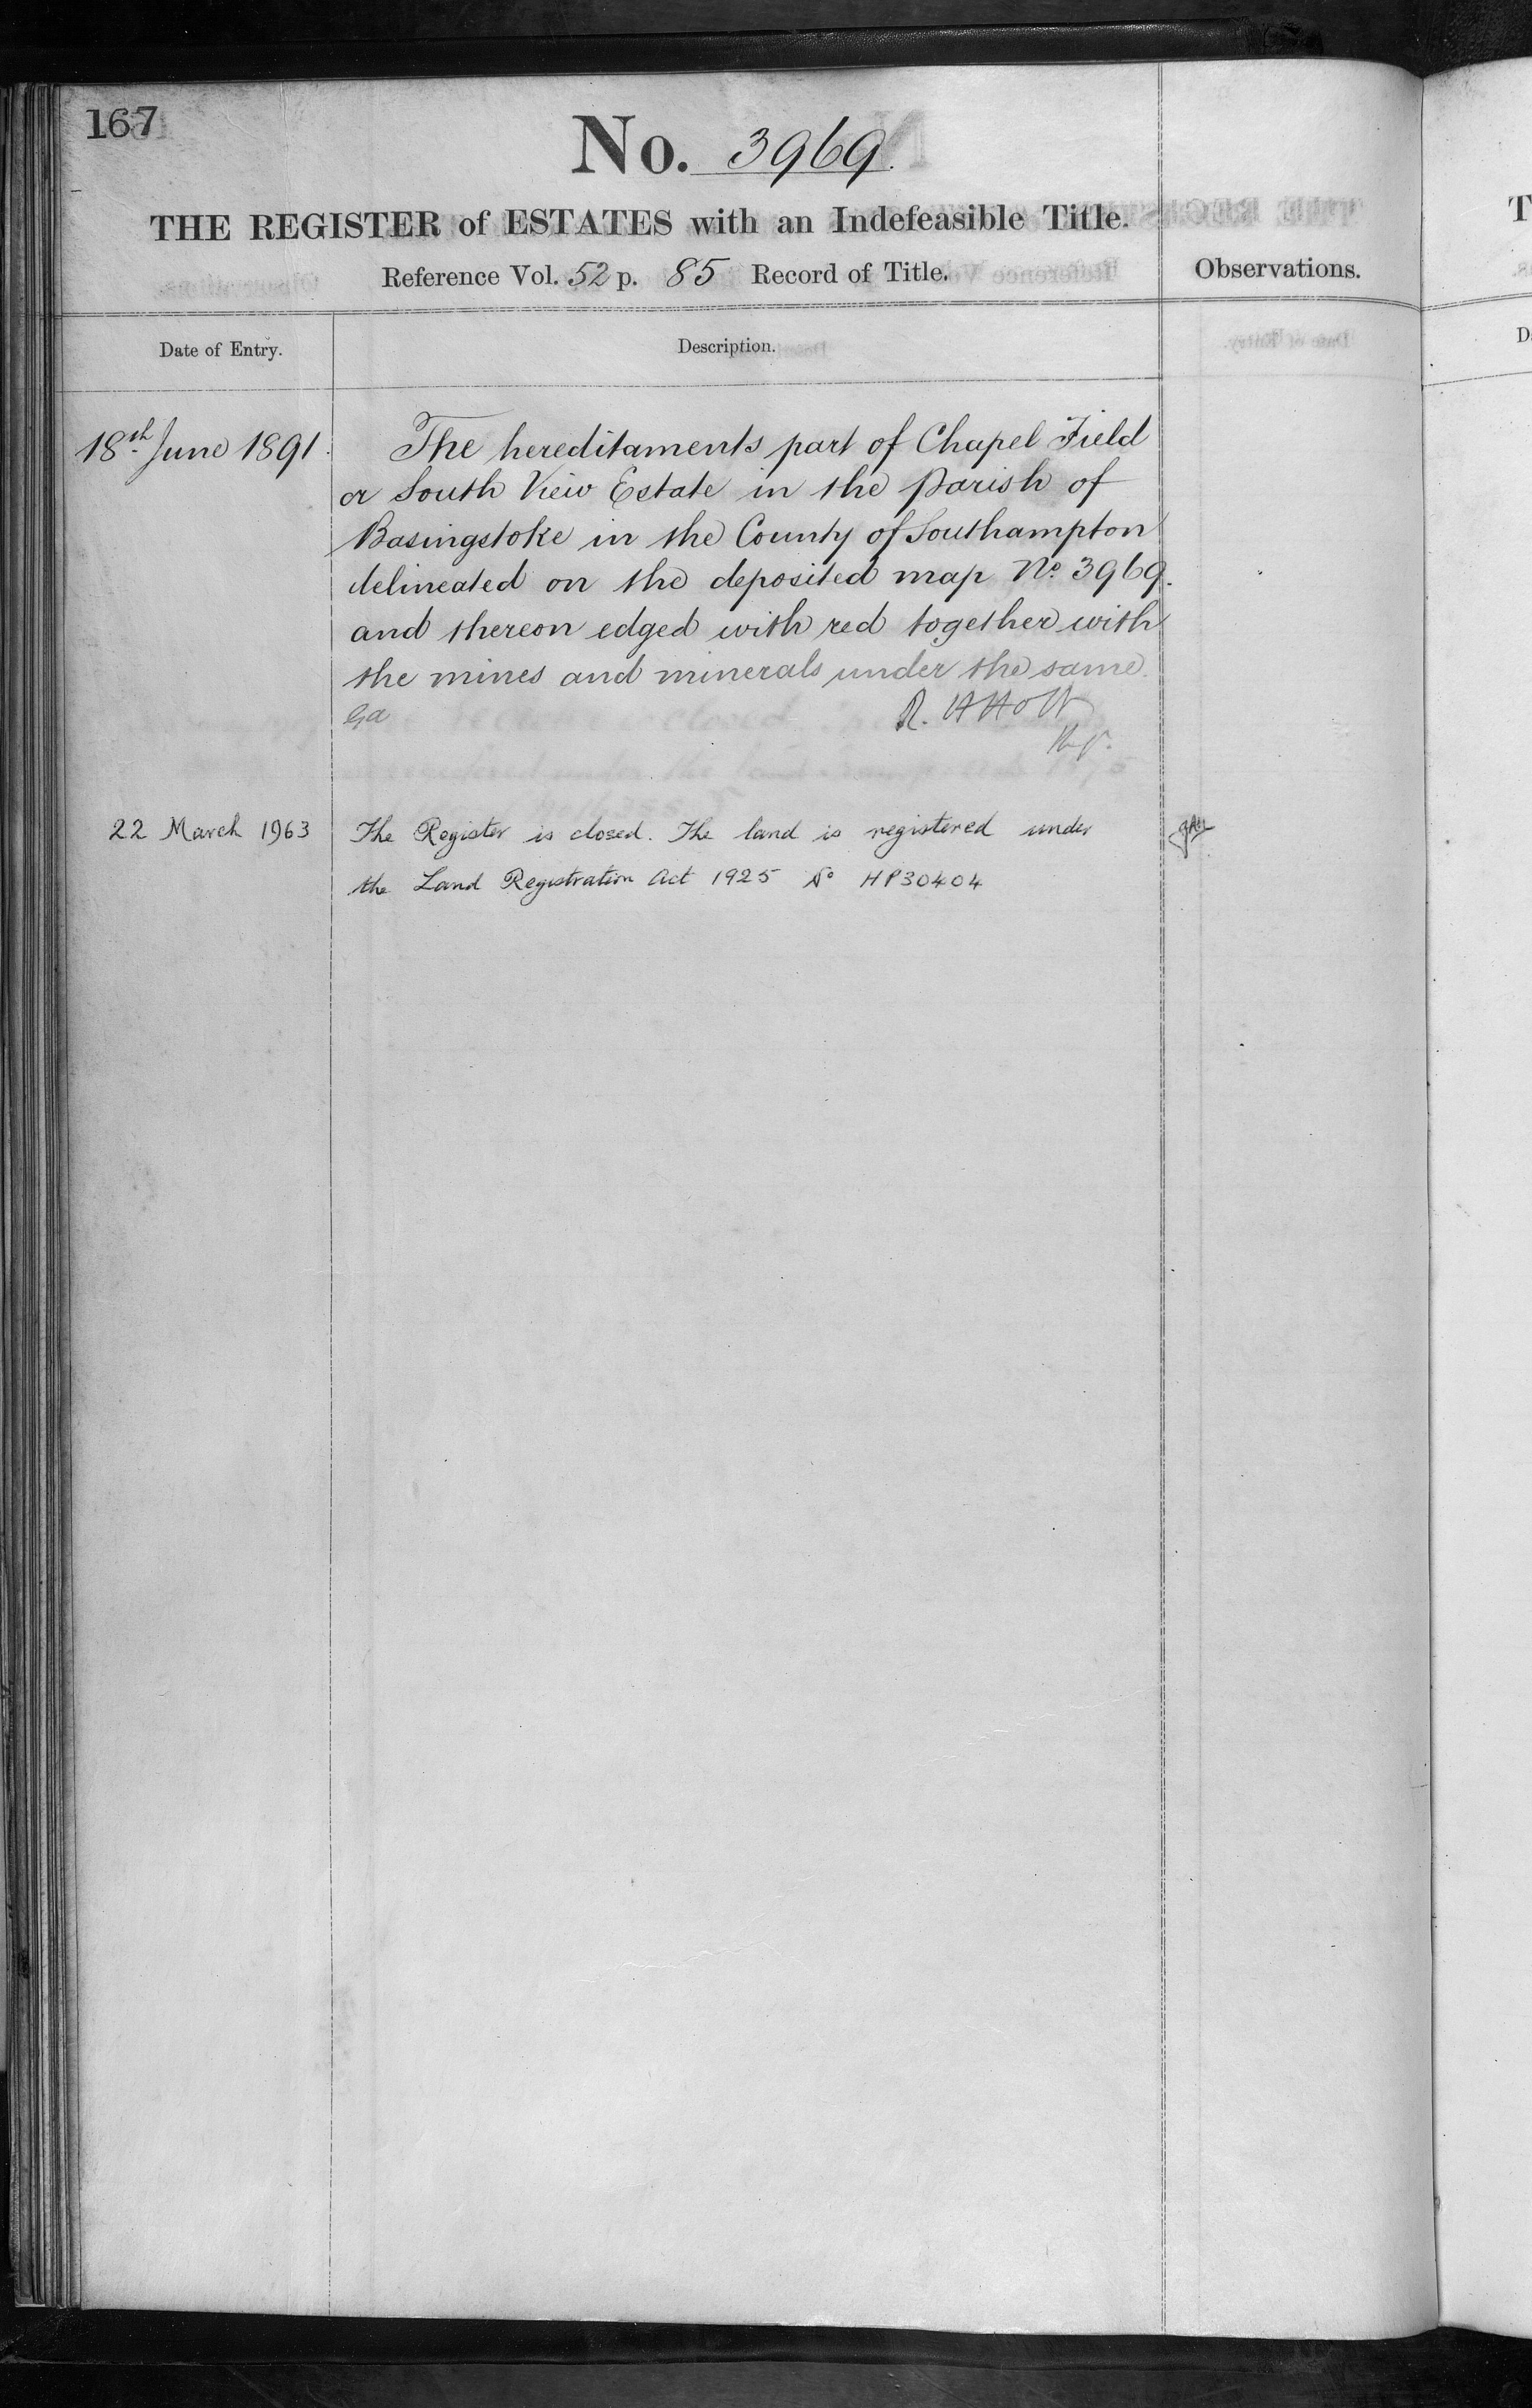 167
No. 3969.
THE REGISTER of ESTATES with an Indefeasible Title.
Reference Vol. 52 p. 85 Record of Title.
Observations.
Date of Entry.
Description.
18th June 1891.
The hereditaments part of Chapel Field
or South View Estate in the Parish of
Basingstoke in the County of Southampton
delineated on the deposited map No. 3969.
and thereon edged with red together with
the mines and minerals under the same.
R. H Holt
22 March 1963
The Register is closed. The land is registered under
the Land Registration Act 1925 No HP30404